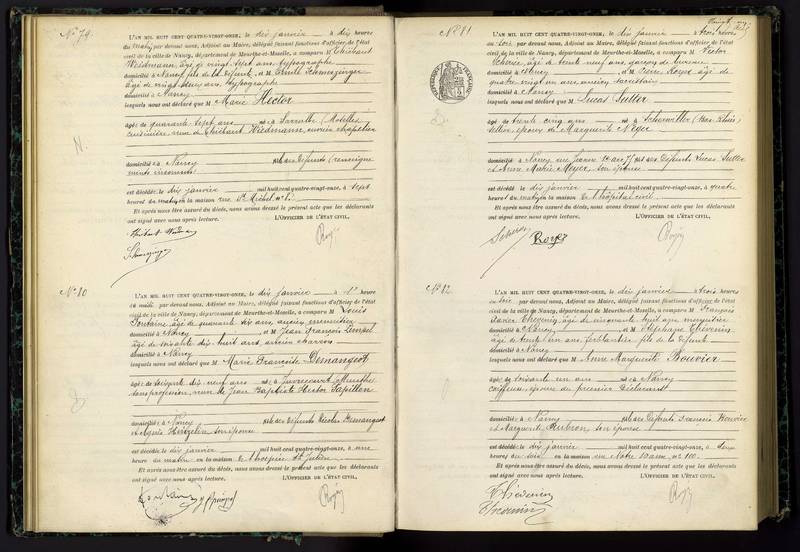 N° 79.
L'AN MIL HUIT CENT QUATRE-VINGT-ONZE, le dix janvier à dix heures
du matin, par devant nous, Adjoint au Maire, délégué faisant fonctions d'officier de l'état
civil de la ville de Nancy, département de Meurthe-et-Moselle, a comparu M Thiébaut
Wiedmann, âgé de vingt sept ans, typographe
domicilié à Nancy, fils de la défunte, et M Emile Schmezinger
âgé de vingt deux ans, typographe
domicilié à Nancy
lesquels nous ont déclaré que M Marie Hector
âgée de quarante sept ans née à Sarralbe (Moselle)
cuisinière, veuve de Thiébaut Wiedmann, ouvrier chapelier
domiciliée à Nancy et de défunts (renseigne
ments inconnus)
est décédée le dix janvier mil huit cent quatre-vingt-onze, à sept
heures du matin en la maison rue St Michel n° 8.
Et après nous être assuré du décès, nous avons dressé le présent acte que les déclarants
ont signé avec nous après lecture. L'OFFICIER DE L'ÉTAT CIVIL,
N° 80
L'AN MIL HUIT CENT QUATRE-VINGT-ONZE, le dix janvier à heure
midi par devant nous, Adjoint au Maire, délégué faisant fonctions d'officier de l'état
civil de la ville de Nancy, département de Meurthe-et-Moselle, a comparu M Louis
Fontaine âgé de quarante dix ans, ancien menuisier
domicilié à Nancy et M Jean François
âgé de soixante dix huit ans, ancien charron
domicilié à Nancy
lesquels nous ont déclaré que M Marie Françoise Demangeot
âgée de soixante dix neuf ans née à Meurthe
sans profession, veuve de Jean Baptiste Hector Papillon
domiciliée à Nancy et de défunts Nicolas Demangeot
et Agnès son épouse
est décédée le dix janvier mil huit cent quatre-vingt-onze, à une
heure du matin en l'hospice St Julien
Et après nous être assuré du décès, nous avons dressé le présent acte que les déclarants
ont signé avec nous après lecture. L'OFFICIER DE L'ÉTAT CIVIL,
N° 81
L'AN MIL HUIT CENT QUATRE-VINGT-ONZE, le dix janvier à trois heures
du soir par devant nous, Adjoint au Maire, délégué faisant fonctions d'officier de l'état
civil de la ville de Nancy, département de Meurthe-et-Moselle, a comparu M Victor
âgé de trente neuf ans, garçon de bureau
domicilié à Nancy, et M Pierre Royer âgé de
quatre vingt un ans, ancien
domicilié à Nancy
lesquels nous ont déclaré que M Lucas Sutter
âgé de trente cinq ans né à Scherwiller (Bas-Rhin)
sellier, époux de Marguerite Néger
domicilié à Nancy, rue Jeanne d'arc et de défunts Lucas Sutter
et Anne Marie Meyer, son épouse
est décédé le dix janvier mil huit cent quatre-vingt-onze, à quatre
heures du matin en la maison de l'hôpital civil
Et après nous être assuré du décès, nous avons dressé le présent acte que les déclarants
ont signé avec nous après lecture. L'OFFICIER DE L'ÉTAT CIVIL,
Royer
N° 82
L'AN MIL HUIT CENT QUATRE-VINGT-ONZE, le dix janvier à trois heures
du soir par devant nous, Adjoint au Maire, délégué faisant fonctions d'officier de l'état
civil de la ville de Nancy, département de Meurthe-et-Moselle, a comparu M François
Xavier Thevenin, âgé de cinquante huit ans menuisier
domicilié à Nancy, et M Stéphane Thevenin
âgé de trente un ans, ferblantier, fils de la défunte
domicilié à Nancy
lesquels nous ont déclaré que M Anne Marguerite Bouvier
âgée de soixante un ans née à Nancy
coiffeuse, épouse du premier déclarant
domiciliée à Nancy et de défunts François Bouvier
et Marguerite son épouse
est décédée le dix janvier mil huit cent quatre-vingt-onze, à deux
heures du soir en la maison rue Notre Dame, n° 100.
Et après nous être assuré du décès, nous avons dressé le présent acte que les déclarants
ont signé avec nous après lecture. L'OFFICIER DE L'ÉTAT CIVIL,
Thevenin
Thevenin